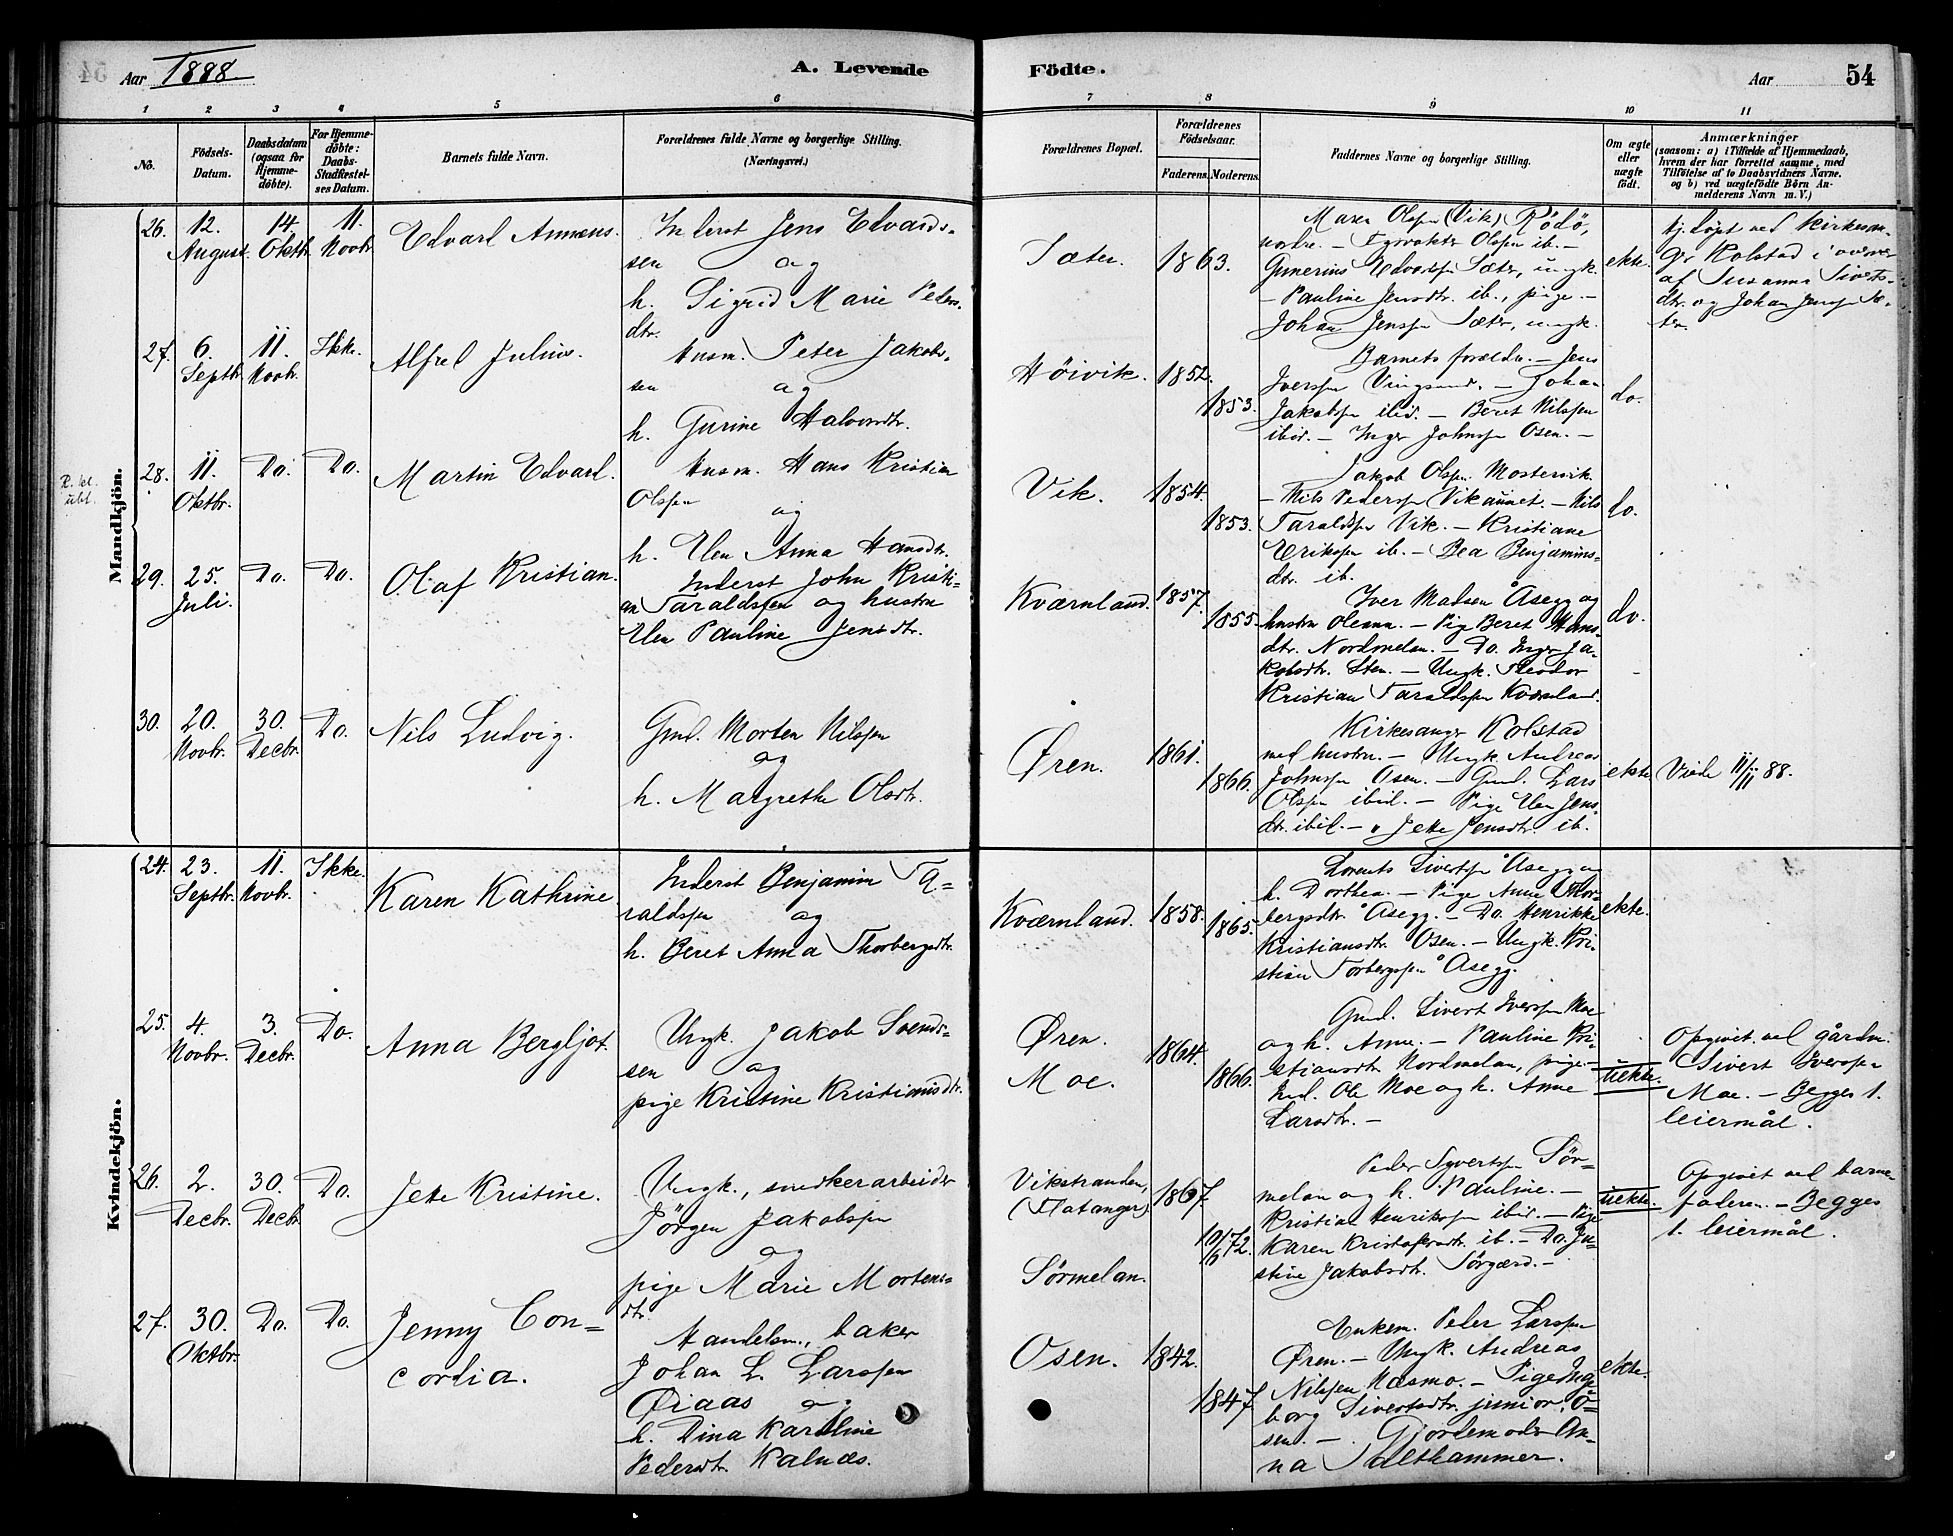 Aar 1888
A. Levende
Födte.
Aar
54
1 2 3 4 5 6 7 8 9 10 11
No.
Födsels-
Datum.
Daabsdatum
(ogsaa for
Hjemme-
döbte).
For Hjemme-
döbte:
Daabs-
Stadfæstel-
ses Datum.
Barnets fulde Navn.
Forældrenes fulde Navne og borgerlige Stilling.
(Næringsvei.)
Forældrenes Bopæl.
Forældrenes
Födselsaar.
Faderens. Moderens.
Faddernes Navne og borgerlige Stilling.
Om ægte
eller
uægte
födt.
Anmærkninger
(saasom: a) i Tilfælde af Hjemmedaab,
hvem der har forrettet samme, med
Tilföielse af to Daabsvidners Navne,
og b) ved uægtefödte Börn An-
melderens Navn m. V.)
Mandkjön.
26.
12.
August.
14.
Oktbr.
11.
Novbr.
Edvard Annæus.
Inderst Jens Edvards-
sen og
h. Sigrid Marie Peders-
dtr.
Sæter.
1863.
Olsen (Vik) Rödö,
Olsen ib. –
Gunerius Edvardsen Sæter, ungk.
– Pauline Jensdtr. ib., pige. –
Johan Jensen Sæter, ungk.
ekte.
hj. döpt ved Kirkesan-
ger Kolstad i overvær
af Susanna Siverts-
dtr. og Johan Jensen Sæ-
ter.
27.
6.
Septbr.
11.
Novbr.
Ikke.
Alfred Julius.
Husm. Peter Jakobs-
sen og
h. Gurine Halvordtr.
Höivik.
1852.
1853.
Barnets foreldre. – Jens
Iversen Vingsand. – Johan
Jakobsen ibid. – Beret Nilssen
ibid. – Inger Johnsen Osen. –
do.
28.
11.
Oktbr.
Do.
Do.
Martin Edvard.
Husm. Hans Kristian
Olssen og
h. Elen Anna Hansdtr.
Vik.
1854.
1853.
Jakob Olsen Mostervik
– Nils Pedersen Vikaunet. – Nils
Taraldsen Vik. – Kristiane
Eriksen ib. – Bea Benjamins-
dtr. ib.
do.
29.
25.
Juli.
Do.
Do.
Olaf Kristian.
Inderst John Kristi-
an Taraldssen og hustru
Elen Pauline Jensdtr.
Kværnland.
1857.
1855.
Iver Madsen Åsegg og
hustru Oleanna. – Pige Beret Hans-
dtr. Nordmelan. – Do. Inger Ja-
kobsdtr. Sten. – Ungk. Teodor
Kristian Taraldsen Kværnland.
do.
30.
20.
Novbr.
30.
Decbr.
Do.
Nils Ludvig.
Gmd. Morten Nilssen
og
h. Margrethe Olsdtr.
Øren.
1861.
1866.
Kirkesanger Kolstad
med hustru. – Ungk. Andreas
Johnsen Osen. – Gmd. Lars
Olssen ibid. – Pige Elen Jens-
dtr. ibid. – " Jette Jensdtr. ib.
ekte
Viede 11/11 88.
Kvindekjön.
24.
23.
Septbr.
11.
Novbr.
Ikke.
Karen Kathrine
Inderst Benjamin Ta-
raldssen og
h. Beret Anna Thorbergsdtr.
Kværnland.
1858.
1865.
Lorents Sivertsen Åsegg og
h. Dorthea. – Pige Anne Thor-
bergsdtr. Åsegg. – Do. Henrikke
Kristiansdtr. Osen. – Ungk. Kri-
stian Torbergssen Åsegg.
ekte.
25.
4.
Novbr.
3.
Decbr.
Do.
Anna Bergljot.
Ungk. Jakob Svends-
sen og
pige Kristine Kristiansdtr.
Øren.
Moe.
1864.
1866.
Gmd. Sivert Iversen Moe
og h. Anne. – Pauline Kri-
stiansdtr. Nordmelan, pige. –
Ind. Ole Moe og h. Anne
Larsdtr. –
uekte.
Opgivet ved gårdm.
Sivert Iversen
Moe. – Begges 1.
leiermål.
26.
2.
Decbr.
30.
Decbr.
Do.
Jette Kristine.
Ungk., snedkerarbeider
Jörgen Jakobssen
og
pige Marie Mortens-
dtr.
Vikstranden,
(Flatanger)
Sörmelan.
1867.
10/6 72.
Peder Syvertsen Sör-
melan og h. Pauline. –
Kristian Henriksen ibid. – Pige
Karen Kristofersdtr. ib. – Do. Ju-
stine Jakobsdtr. Sörgærd. –
uekte.
Opgivet ved barne-
faderen. – Begges
1. leiermål.
27.
30.
Oktbr.
Do.
Do.
Jenny Con-
cordia.
Handelsm., baker
Johan L. Larssen
Øiaas og
h. Dina Karoline
Pedersdtr. Kalnæs.
Osen.
1842.
1847.
Enkem. Peder Larssen
Øren. – Ungk. Andreas
Nilssen Næsmo. – Pige Inge-
borg Sivertsdtr. junior, O-
sen. – Gjordemoder An-
na Salthammer.
ekte.